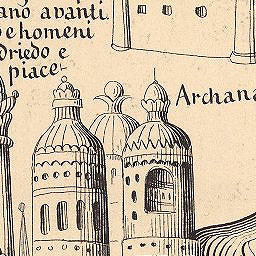 ano avanti.
e homeni
driedo e
piace
Archana